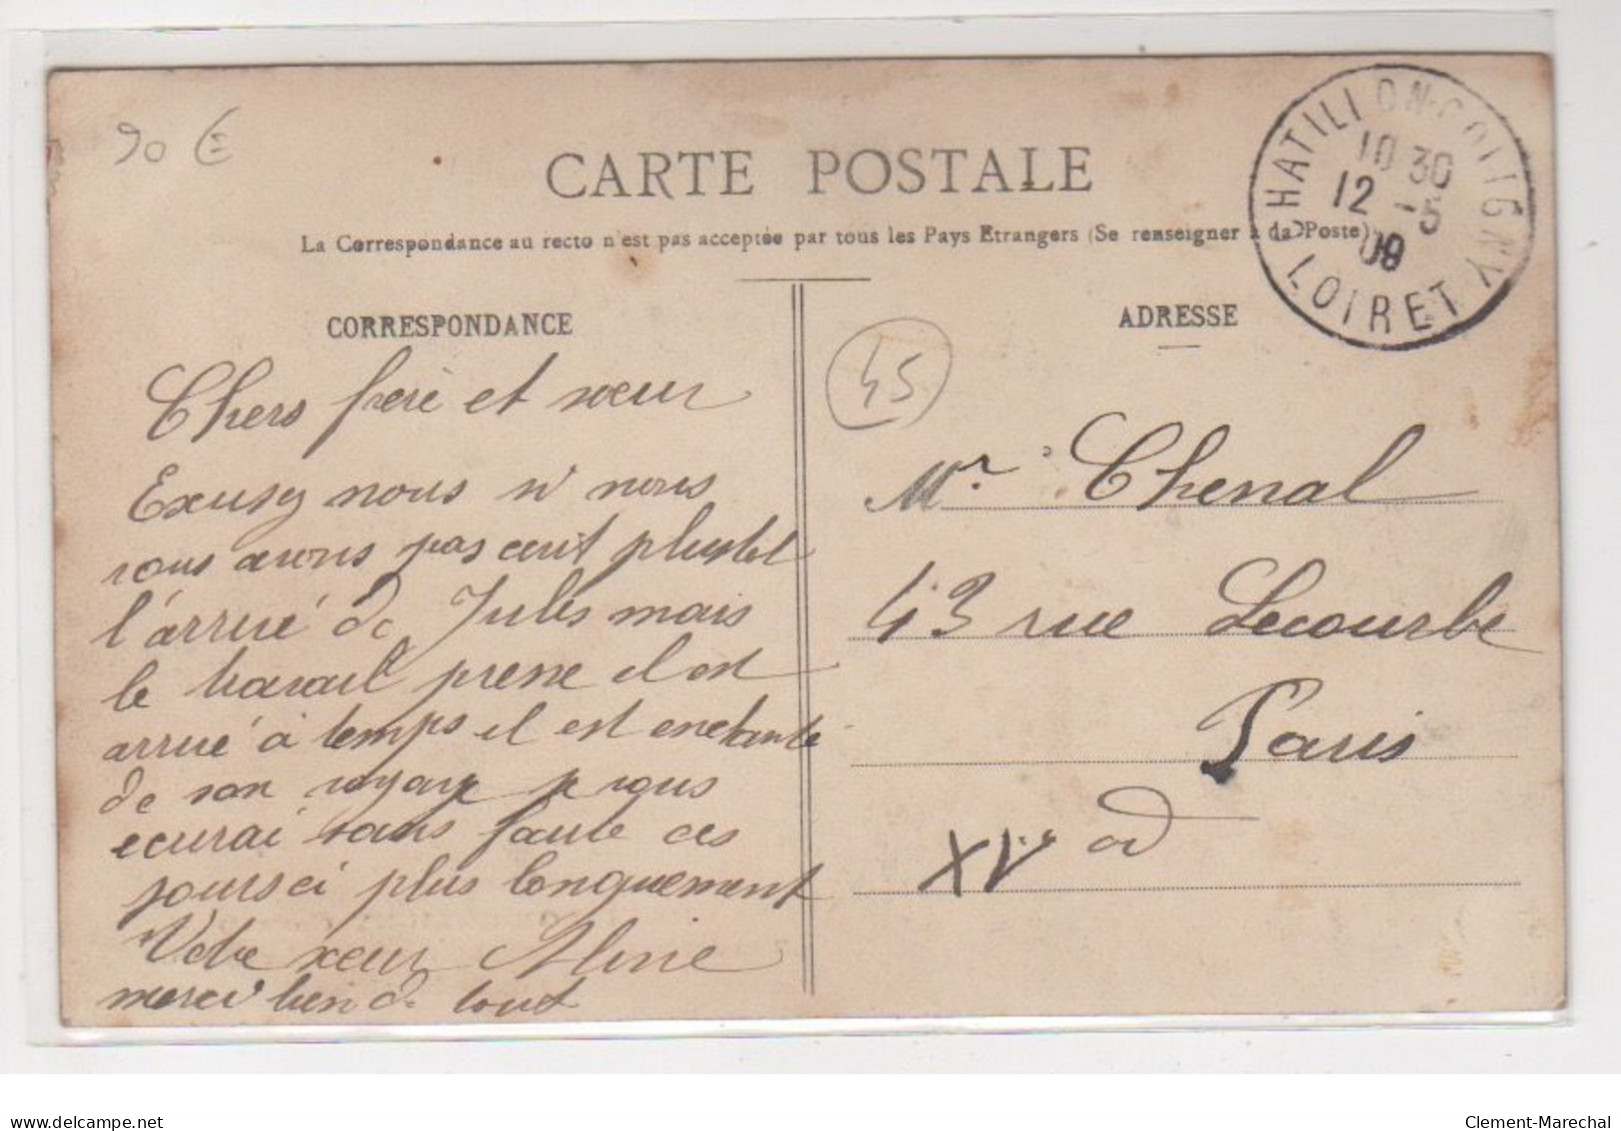 90 €
CARTE POSTALE
La Correspondance au recto n'est pas acceptée par tous les Pays Etrangers (Se renseigner à la Poste)
HATILLON-COLIGNY
10 30
12 -5
09
LOIRET
CORRESPONDANCE
ADRESSE
45
Chers frère et sœur
Excusez nous si nous
vous avons pas écrit plustot
l'arrivé de Jules mais
le travail presse il est
arrivé à temps il est enchanté
de son voyage je vous
ecurai sans faute ces
jours ci plus longuement
Votre sœur Aline
merci bien de tout
Mr Chenal
43 rue Lecourbe
Paris
XV